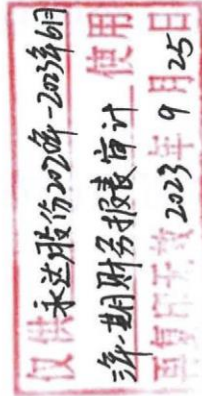 仅供永达股份2020年-2023年6月
三年一期财务报表审计使用
复印无效 2023年9月25日